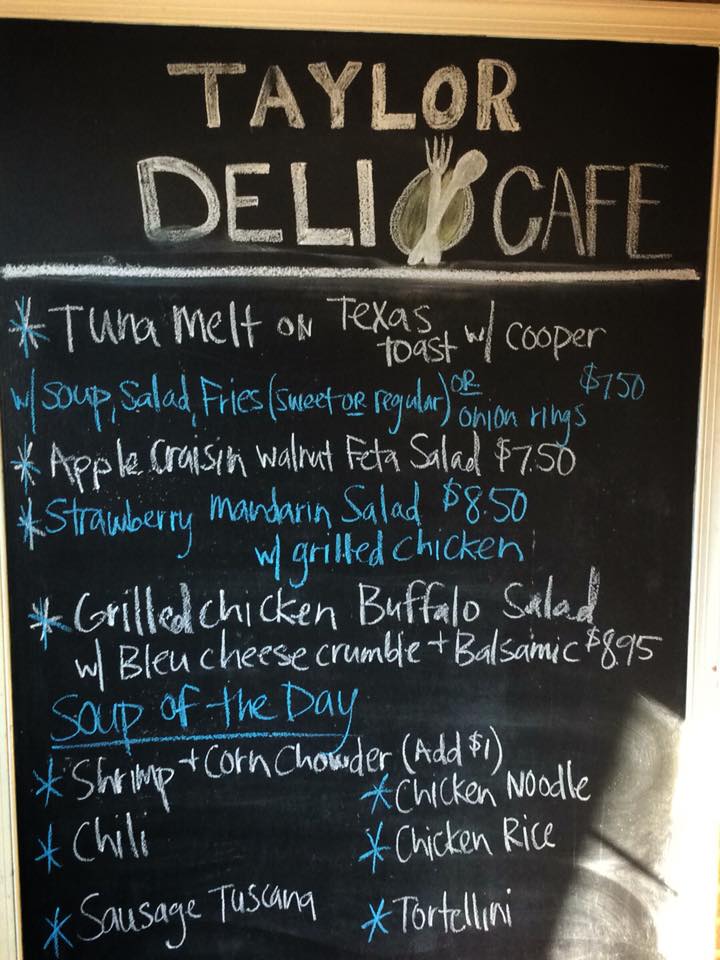 TAYLOR
DELI CAFE
* Tuna melt on Texas toast w/ cooper
w/ soup, Salad, Fries (sweet OR regular) OR onion rings $7.50
* Apple Craisin walnut Feta Salad $7.50
* Strawberry mandarin Salad $8.50
w/ grilled chicken
* Grilled chicken Buffalo Salad
w/ Bleu cheese crumble + Balsamic $8.95
Soup of the Day
* Shrimp + Corn Chowder (Add $1)
* Chicken Noodle
* Chili
* Chicken Rice
* Sausage Tuscana
* Tortellini